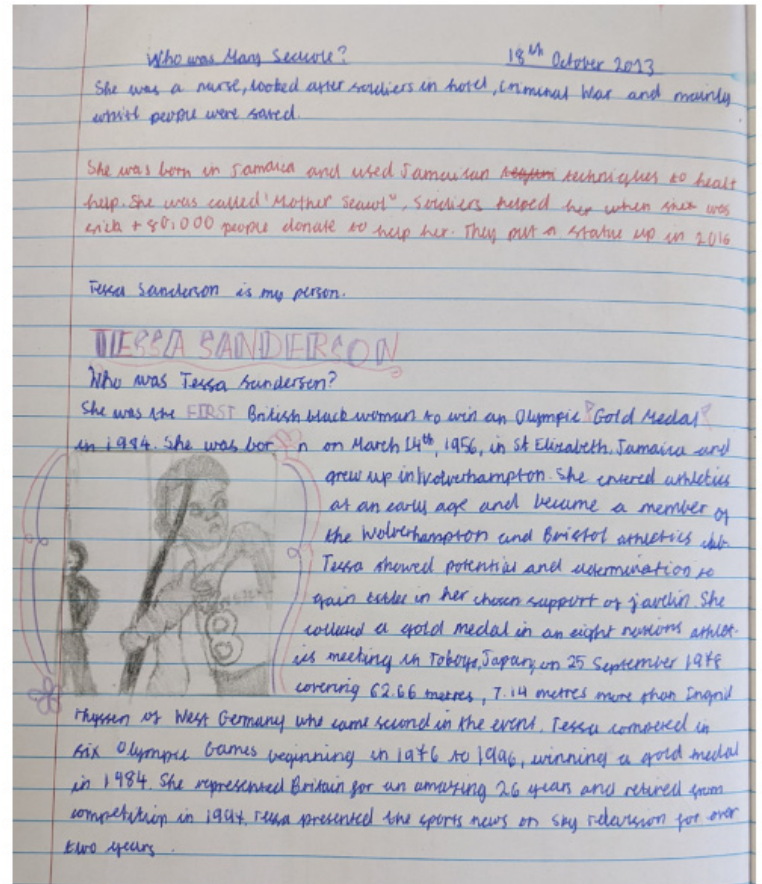 Who was Mary Seacole? 18th October 2023
She was a nurse, looked after soldiers in hotel, Criminal War and mainly
whilst people were saved.
She was born in Jamaica and used Jamaican techniques to healt
help. She was called "Mother Seacol", Soldiers helped her when she was
sick + 80,000 people donate to help her. They put a statue up in 2016
Tessa Sanderson is my person.
TESSA SANDERSON
Who was Tessa Sanderson?
She was the FIRST British black woman to win an Olympic Gold Medal
in 1984. She was born on March 14th, 1956, in St Elizabeth, Jamaica and
grew up in Wolverhampton. She entered athletics
at an early age and became a member of
the Wolverhampton and Bristol athletics club.
Tessa showed potential and determination to
gain titles in her chosen support of javelin. She
collected a gold medal in an eight nations athlet-
ics meeting in Tokoyo, Japan, on 25 September 1978
covering 62.66 metres, 7.14 metres more than Ingrid
Thyssen of West Germany who came second in the event. Tessa competed in
six Olympic Games beginning in 1976 to 1996, winning a gold medal
in 1984. She represented Britain for an amazing 26 years and retired from
competition in 1997. Tessa presented the sports news on Sky television for over
two years.